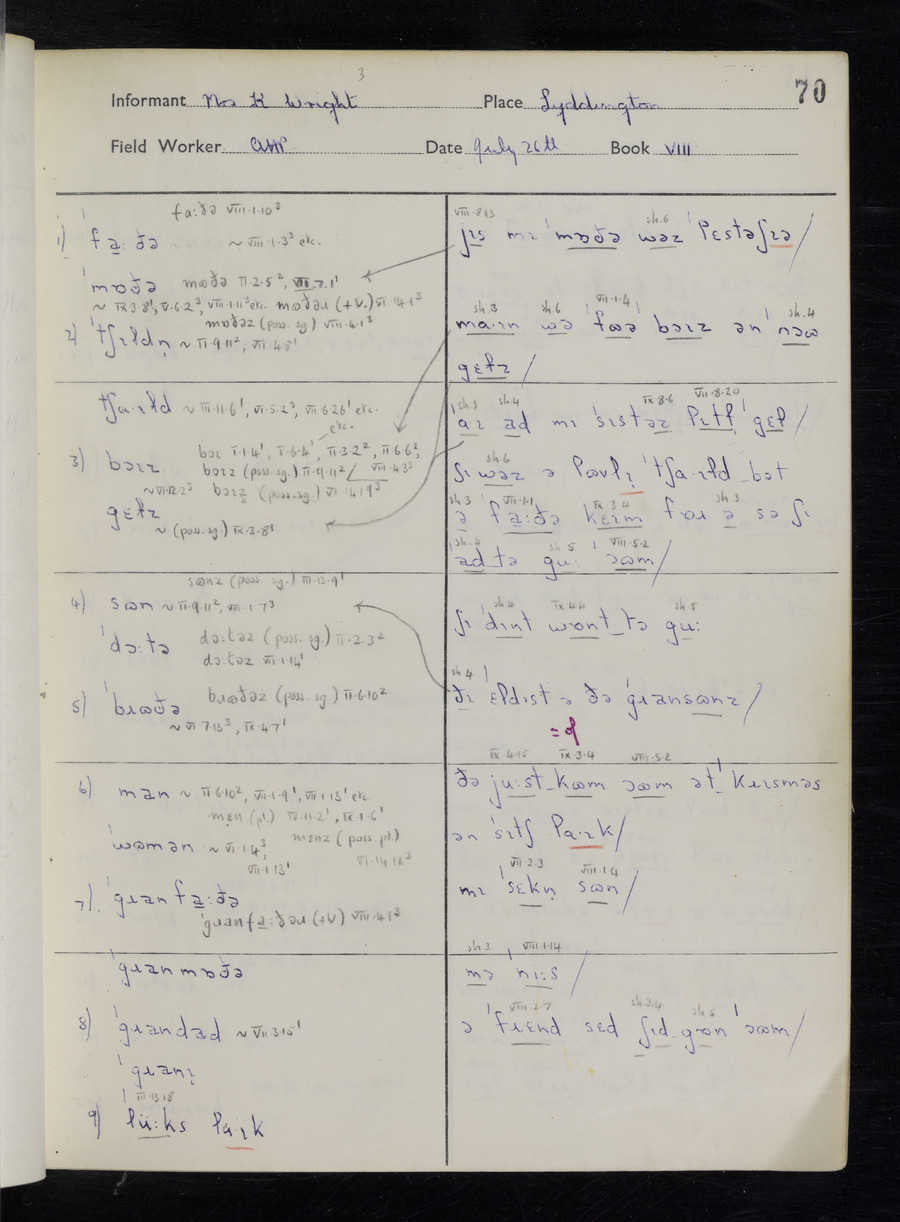 3
70
Informant Mrs K Wright Place Lyddington
Field Worker Date July 26th Book VIII
fa:ðə VIII·1·10³
1) ˈfa:ðə ~ VIII·1·3³ etc.
ˈmɒðə mɒðə II·2·5², VII·7·1¹
~ IX·3·8¹, V·6·2³, VIII·1·11³ etc. mɒðəɹ (+V.) VI·14·1³
mɒðəz (poss. sg.) VIII·4·1³
2) ˈtʃɪldn̩ ~ II·9·11², VI·4·5¹
tʃaɪld ~ III·11·6¹, VI·5·2³, VII·6·26¹ etc.
bɔɪ I·1·4¹, I·6·4¹, etc. II·3·2², II·6·6²,
3) bɔɪz bɔɪz (poss. sg.) II·9·11² / VIII·4·3³
~ VI·12·2³ bɔɪz̥ (poss. sg.) VI·14·19³
gɛlz
~ (poss. sg.) IX·3·8¹
sɷnz (poss. sg.) III·13·9¹
4) sɷn ~ II·9·11², VIII·1·7³
ˈdɔ:tə dɔ:təz (poss. sg.) II·2·3²
dɔ:təz VII·1·14¹
5) ˈbɹɷðə bɹɷðəz (poss. sg.) II·6·10²
~ VI·7·13³, IX·4·7¹
6) man ~ II·6·10², VII·1·9¹, VII·1·13¹ etc.
mɛn (pl.) IV·11·2¹, IX·1·6¹
ˈwɷmən ~ VI·1·4³, VII·1·13¹ mɛnz (poss. pl.) VI·14·12³
7) ˈgɹanfa:ðə
ˈgɹanfa:ðəɹ (+V) VIII·4·1³
ˈgɹanmɒðə
8) ˈgɹandad ~ VII·3·15¹
ˈgɹanɪ
III·13·18
9) ˈlü:ks laɪk
VIII·8·13 sh.6
jɪs mɪ ˈmɒðə wəz ˈlɛstəʃɪə/
sh.3 sh.6 VII·1·4¹ sh.4
ma·ɪn wə ˈfɷə ˈbɔɪz ən ˈnɔɷ
gɛlz/
sh.3 sh.4 IX·8·6 VII·8·20
ˈaɪ ad mɪ ˈsɪstəz lɪtl̩ ˈgɛl/
sh.6
ʃɪ wəz ə ˈlɒvlɪ ˈtʃaɪld bət
sh.3 VIII·1·1 IX·3·4 sh.3
ə ˈfa:ðə kɛɪm fɒɹ ə sə ʃɪ
sh.4 sh.5 VIII·5·2
ˈad tə gu: ˈɔɷm/
sh.4 IX·4·4 sh.5
ʃɪ ˈdɪnt wɒnt tə gu:
sh 4
ðɪ ˈɛldɪst ə ðə ˈgɹansɷnz/
IX·4·15 IX·3·4 VIII·5·2
ðə ju:st kɷm ɔɷm ət ˈkɹɪsməs
ən ˈsɪtʃ laɪk/
VII·2·3 VIII·1·4
mɪ ˈsɛkn̩ sɷn/
sh 3 VIII·1·14
mə ˈni:s/
VIII·2·7 sh 3,4 sh 5
ə ˈfɹɛnd sɛd ʃɪd gɒn ˈɔɷm/